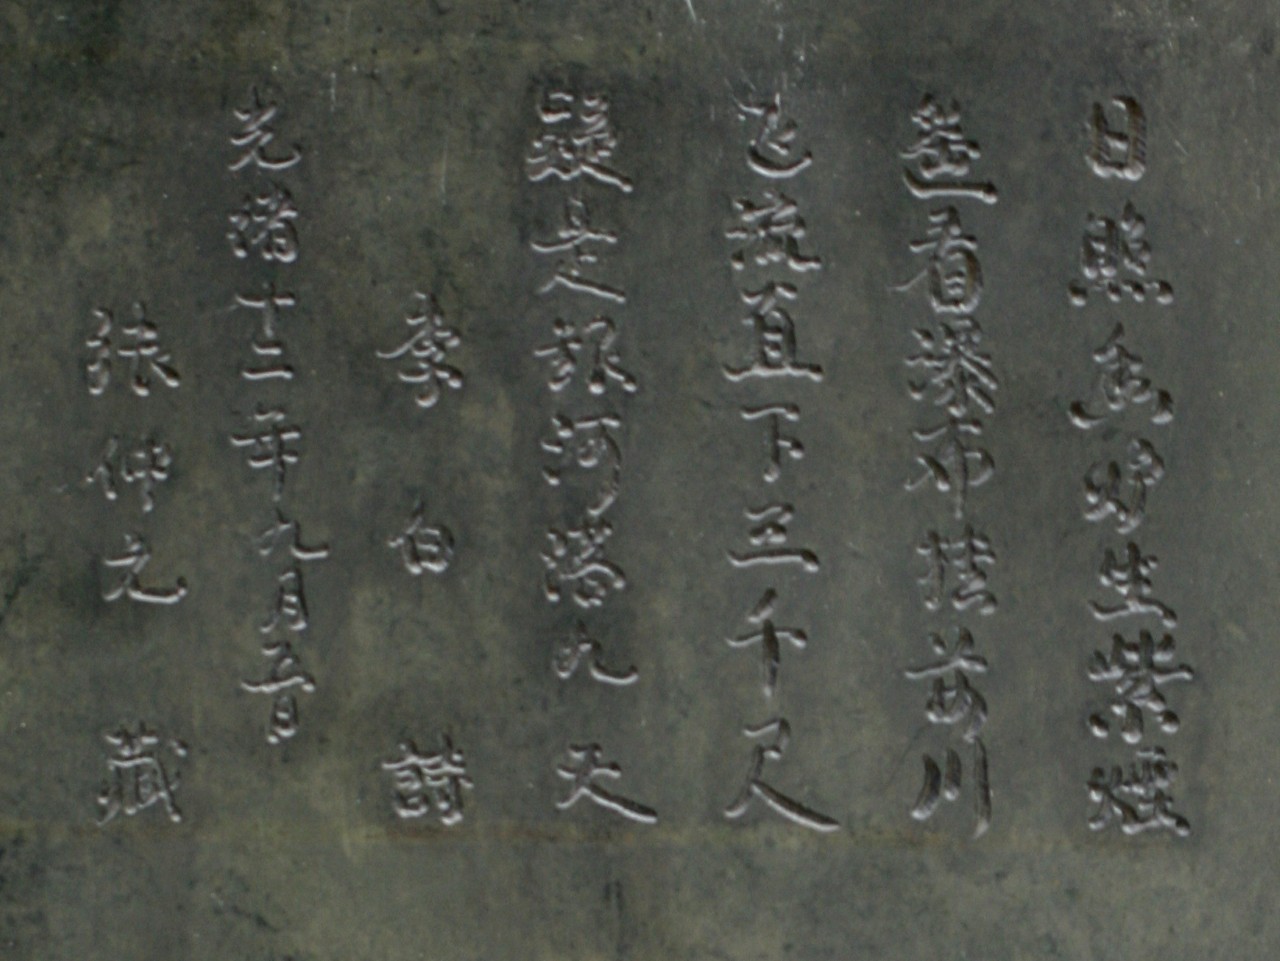 日照香炉生紫煙
遥看瀑布挂前川
飞流直下三千尺
疑是银河落九天
李白詩
光緒十二年九月五日
張仲之藏